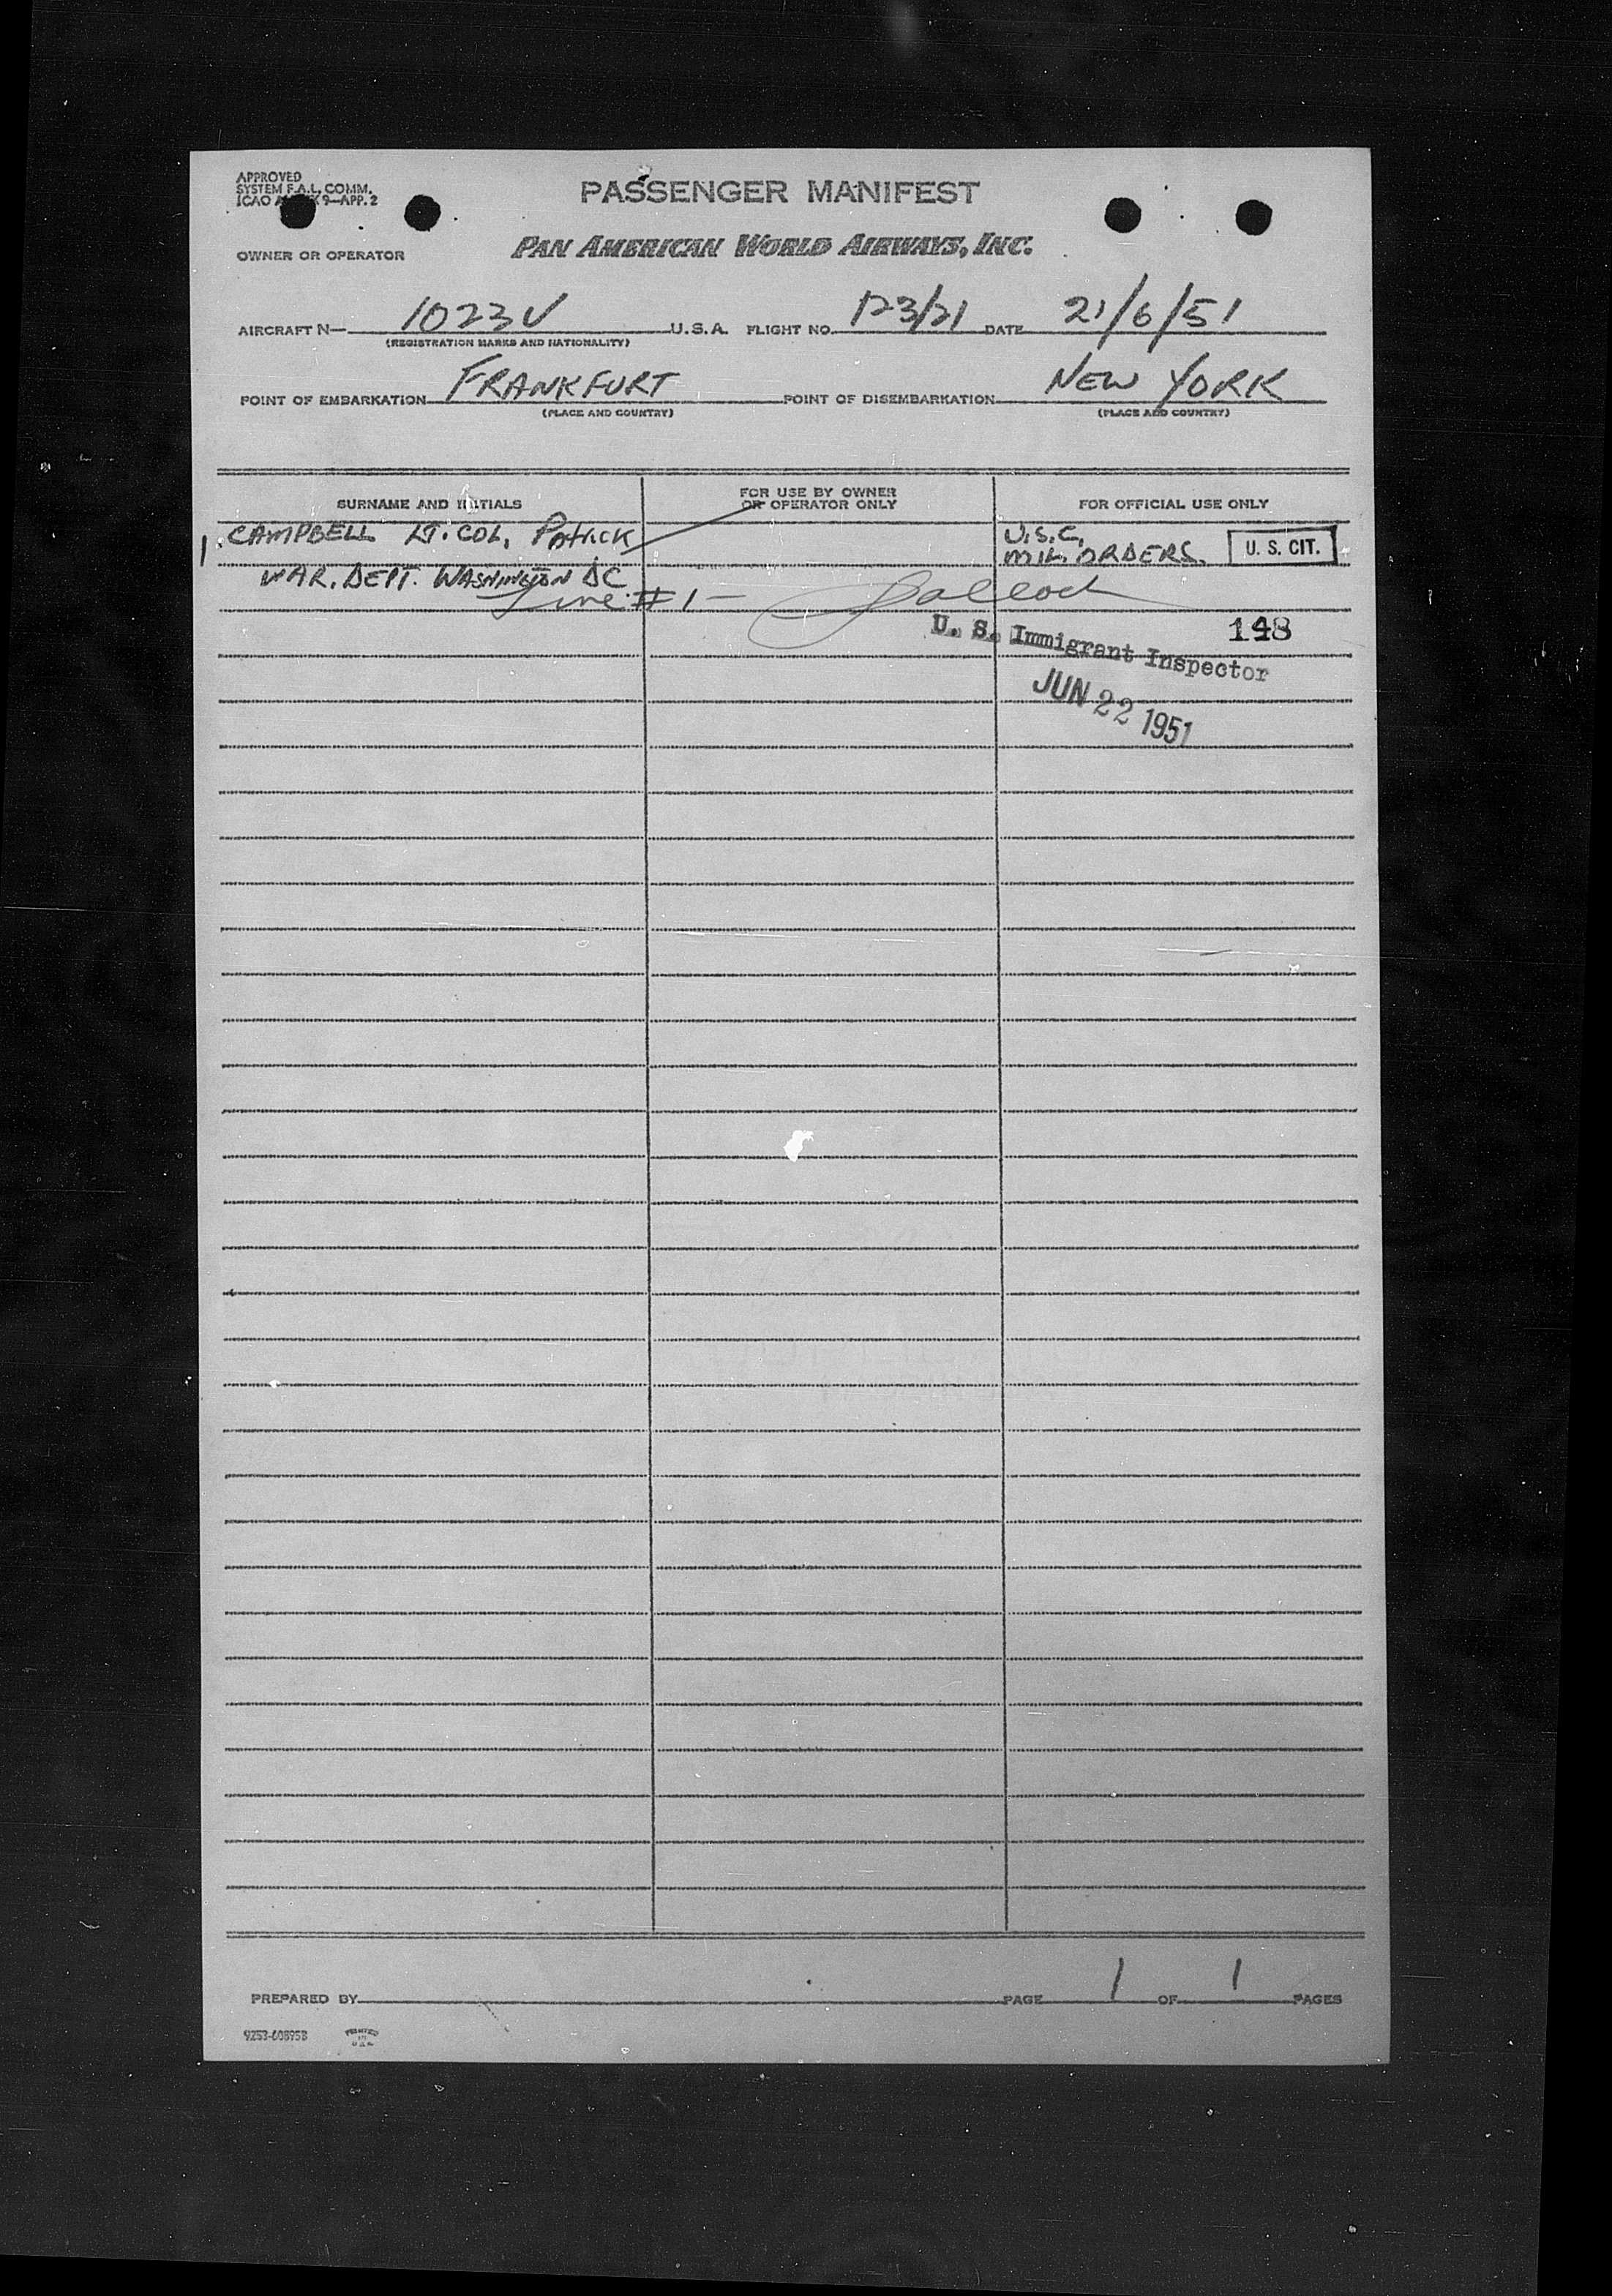 APPROVED
SYSTEM F.A.L. COMM.
ICAO 9—APP. 2
PASSENGER MANIFEST
OWNER OR OPERATOR PAN AMERICAN WORLD AIRWAYS, INC.
AIRCRAFT N— 1023V U.S.A. FLIGHT NO. 123/21 DATE 21/6/51
(REGISTRATION MARKS AND NATIONALITY)
POINT OF EMBARKATION FRANKFURT POINT OF DISEMBARKATION NEW YORK
(PLACE AND COUNTRY) (PLACE AND COUNTRY)
SURNAME AND INITIALS FOR USE BY OWNER OR OPERATOR ONLY FOR OFFICIAL USE ONLY
1. CAMPBELL LT. COL. Patrick U.S.C. MIL. ORDERS. U. S. CIT.
WAR. DEPT. WASHINGTON DC
Line #1 —
148
U. S. Immigrant Inspector
JUN 22 1951
PREPARED BY PAGE 1 OF 1 PAGES
9253-60895B PRINTED IN U.S.A.